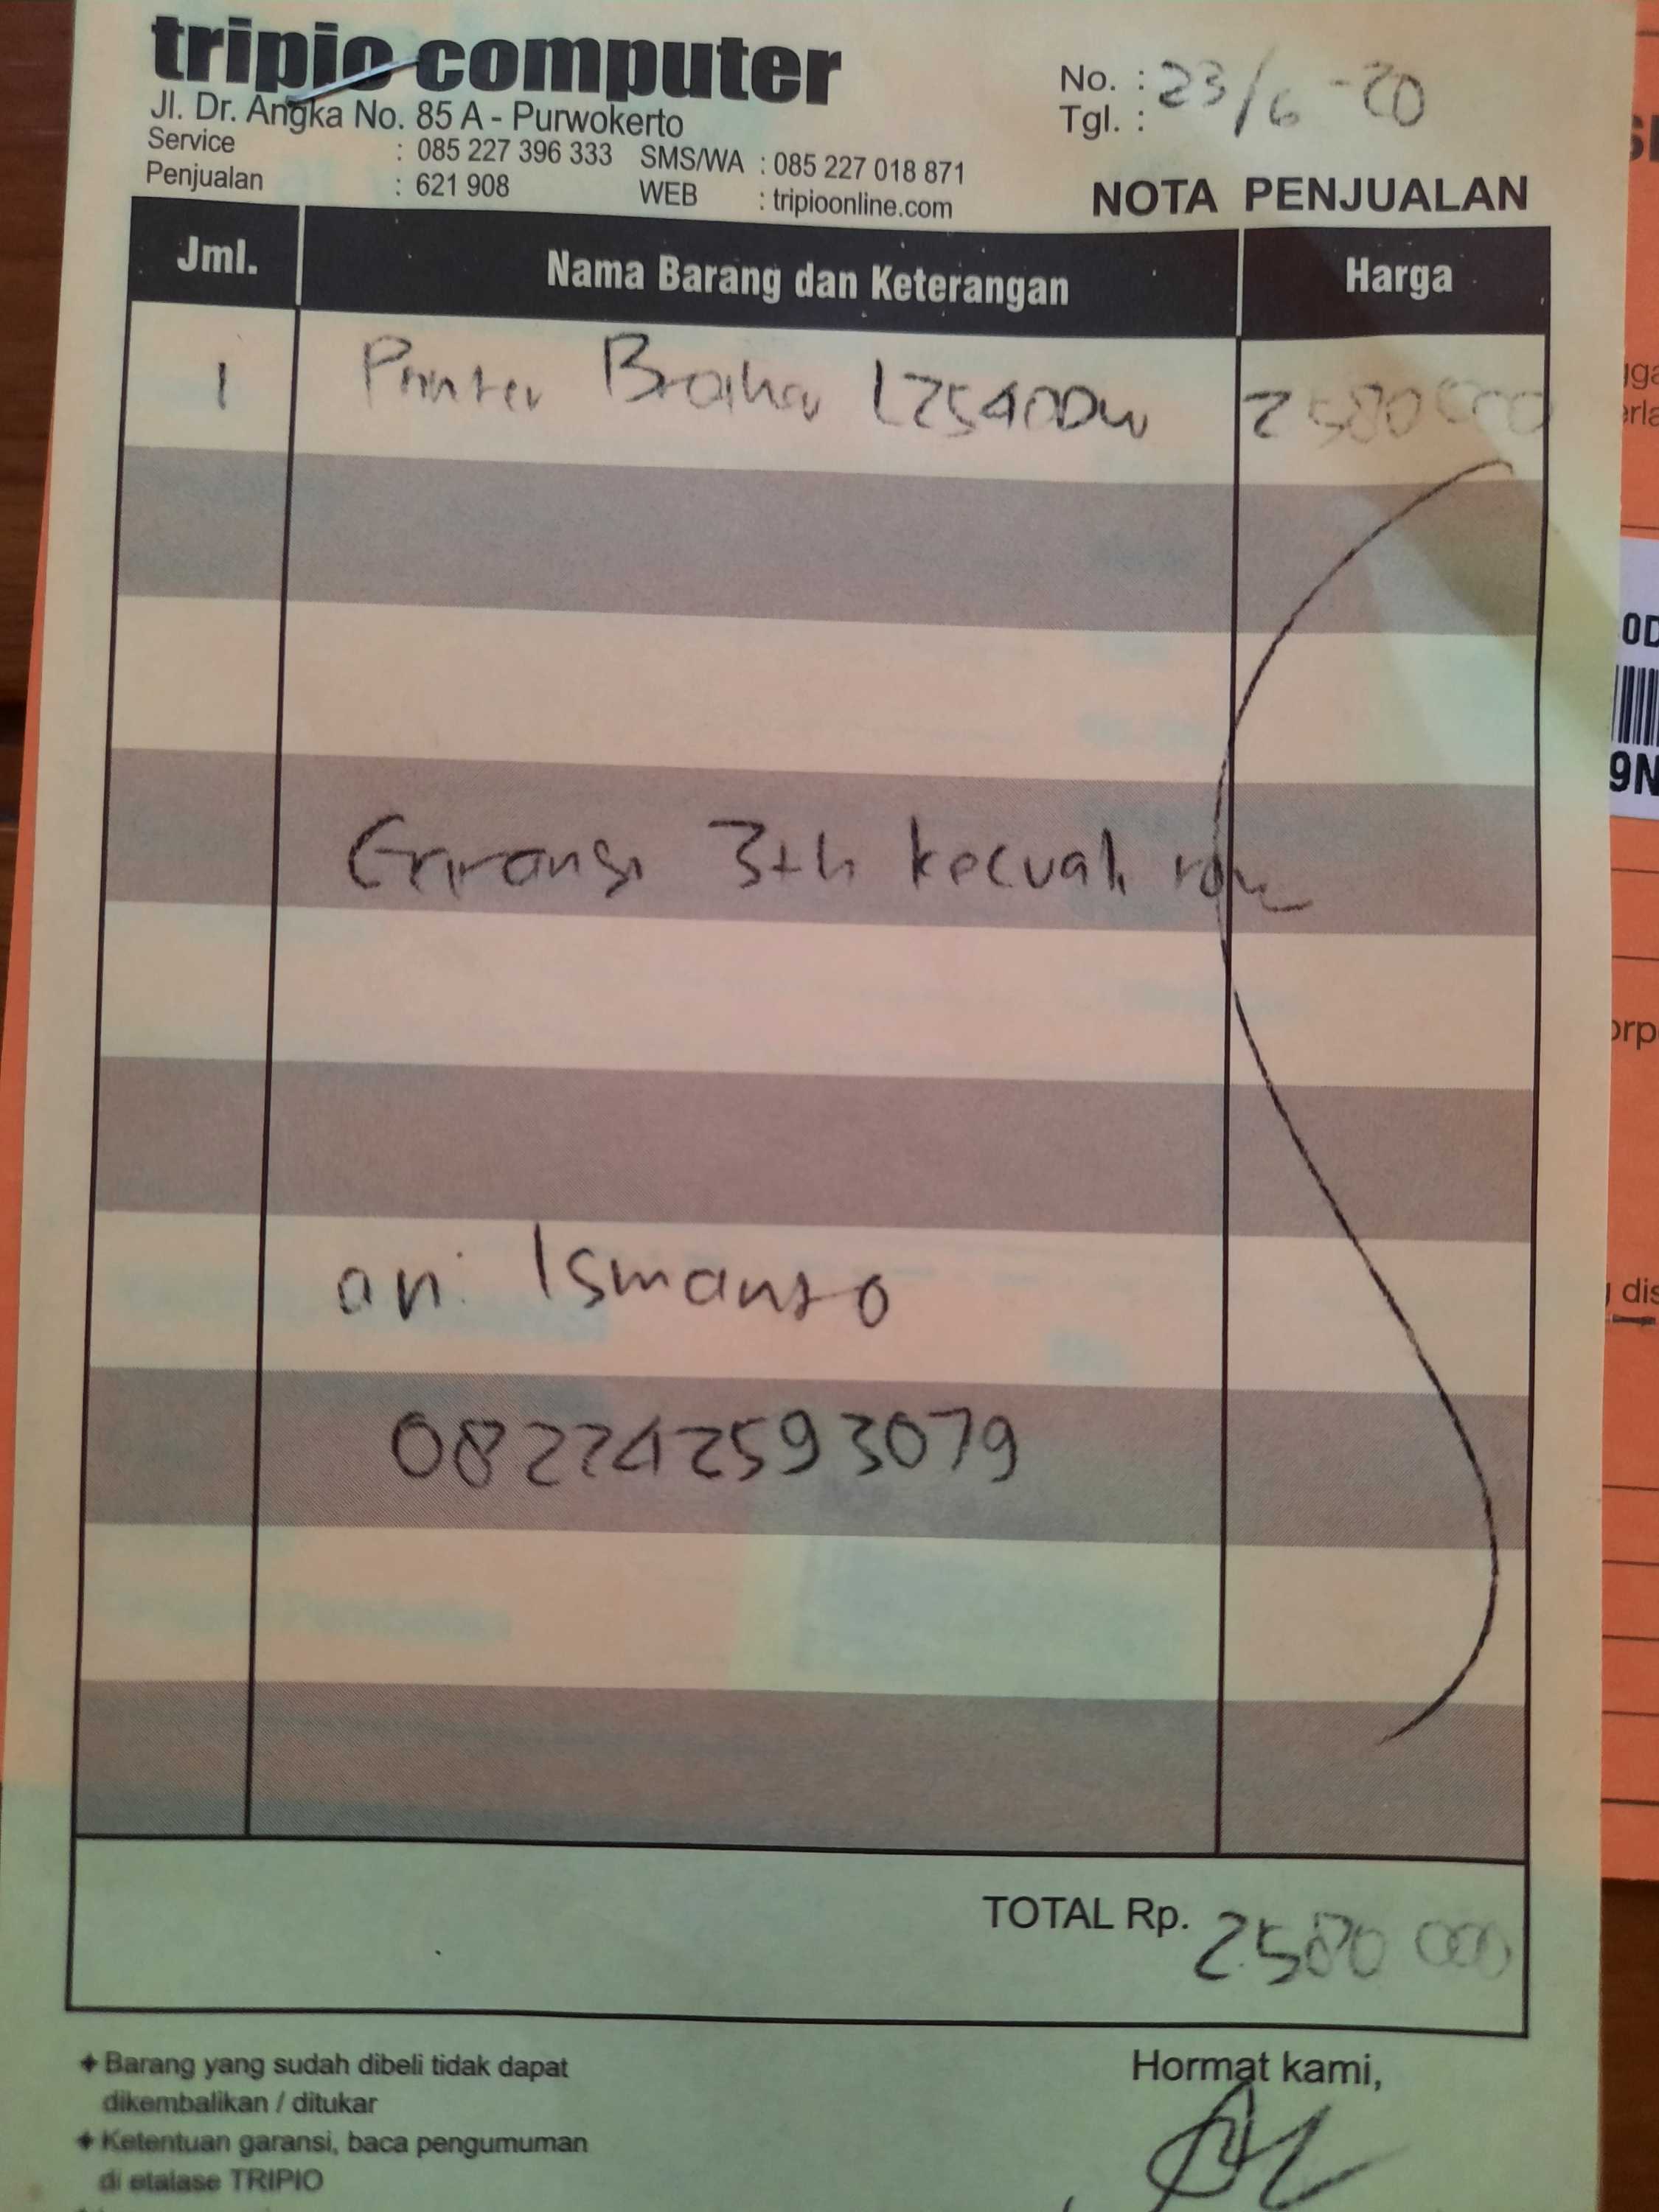 tripio computer
Jl. Dr. Angka No. 85 A - Purwokerto
Service : 085 227 396 333 SMS/WA : 085 227 018 871
Penjualan : 621 908 WEB : tripioonline.com
No. :
Tgl. : 23/6-20
NOTA PENJUALAN
Jml. Nama Barang dan Keterangan Harga
1 Printer Brother L2540DW 2580000
Garansi 3th kecuali
an. Ismanto
082242593079
TOTAL Rp. 2.580 000
Barang yang sudah dibeli tidak dapat
dikembalikan / ditukar
Ketentuan garansi, baca pengumuman
di etalase TRIPIO
Hormat kami,
0D
9N
orp
dis